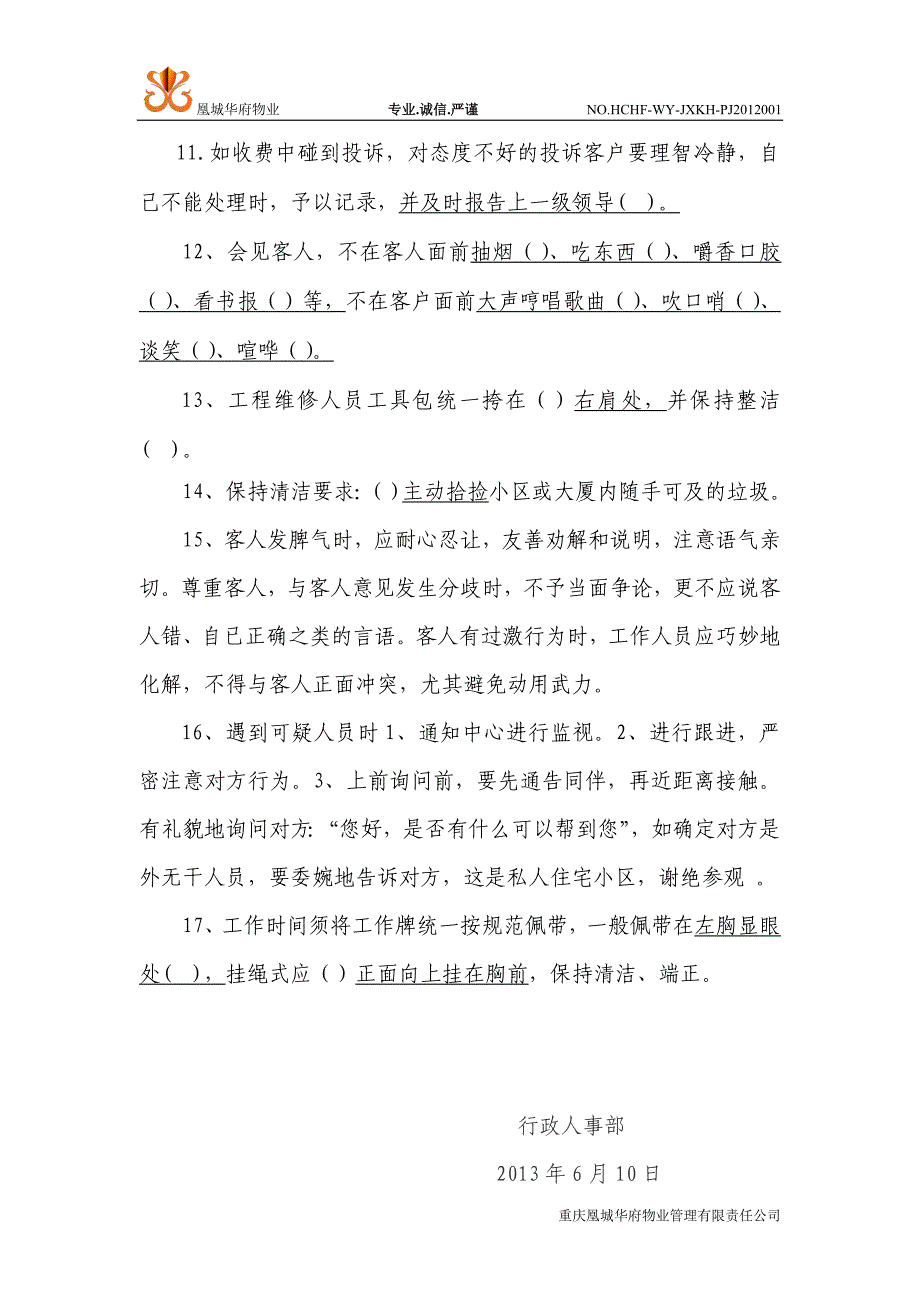 凰城华府物业 专业.诚信.严谨 NO.HCHF-WY-JXKH-PJ2012001
11.如收费中碰到投诉，对态度不好的投诉客户要理智冷静，自
己不能处理时，予以记录，并及时报告上一级领导( )。
12、会见客人，不在客人面前抽烟（）、吃东西（）、嚼香口胶
（）、看书报（）等，不在客户面前大声哼唱歌曲（）、吹口哨（）、
谈笑（）、喧哗（）。
13、工程维修人员工具包统一挎在（）右肩处，并保持整洁
( )。
14、保持清洁要求:（）主动拾捡小区或大厦内随手可及的垃圾。
15、客人发脾气时，应耐心忍让，友善劝解和说明，注意语气亲
切。尊重客人，与客人意见发生分歧时，不予当面争论，更不应说客
人错、自已正确之类的言语。客人有过激行为时，工作人员应巧妙地
化解，不得与客人正面冲突，尤其避免动用武力。
16、遇到可疑人员时 1、通知中心进行监视。2、进行跟进，严
密注意对方行为。3、上前询问前，要先通告同伴，再近距离接触。
有礼貌地询问对方:“您好，是否有什么可以帮到您”，如确定对方是
外无干人员，要委婉地告诉对方，这是私人住宅小区，谢绝参观 。
17、工作时间须将工作牌统一按规范佩带，一般佩带在左胸显眼
处( )，挂绳式应（）正面向上挂在胸前，保持清洁、端正。
行政人事部
2013 年 6 月 10 日
重庆凰城华府物业管理有限责任公司